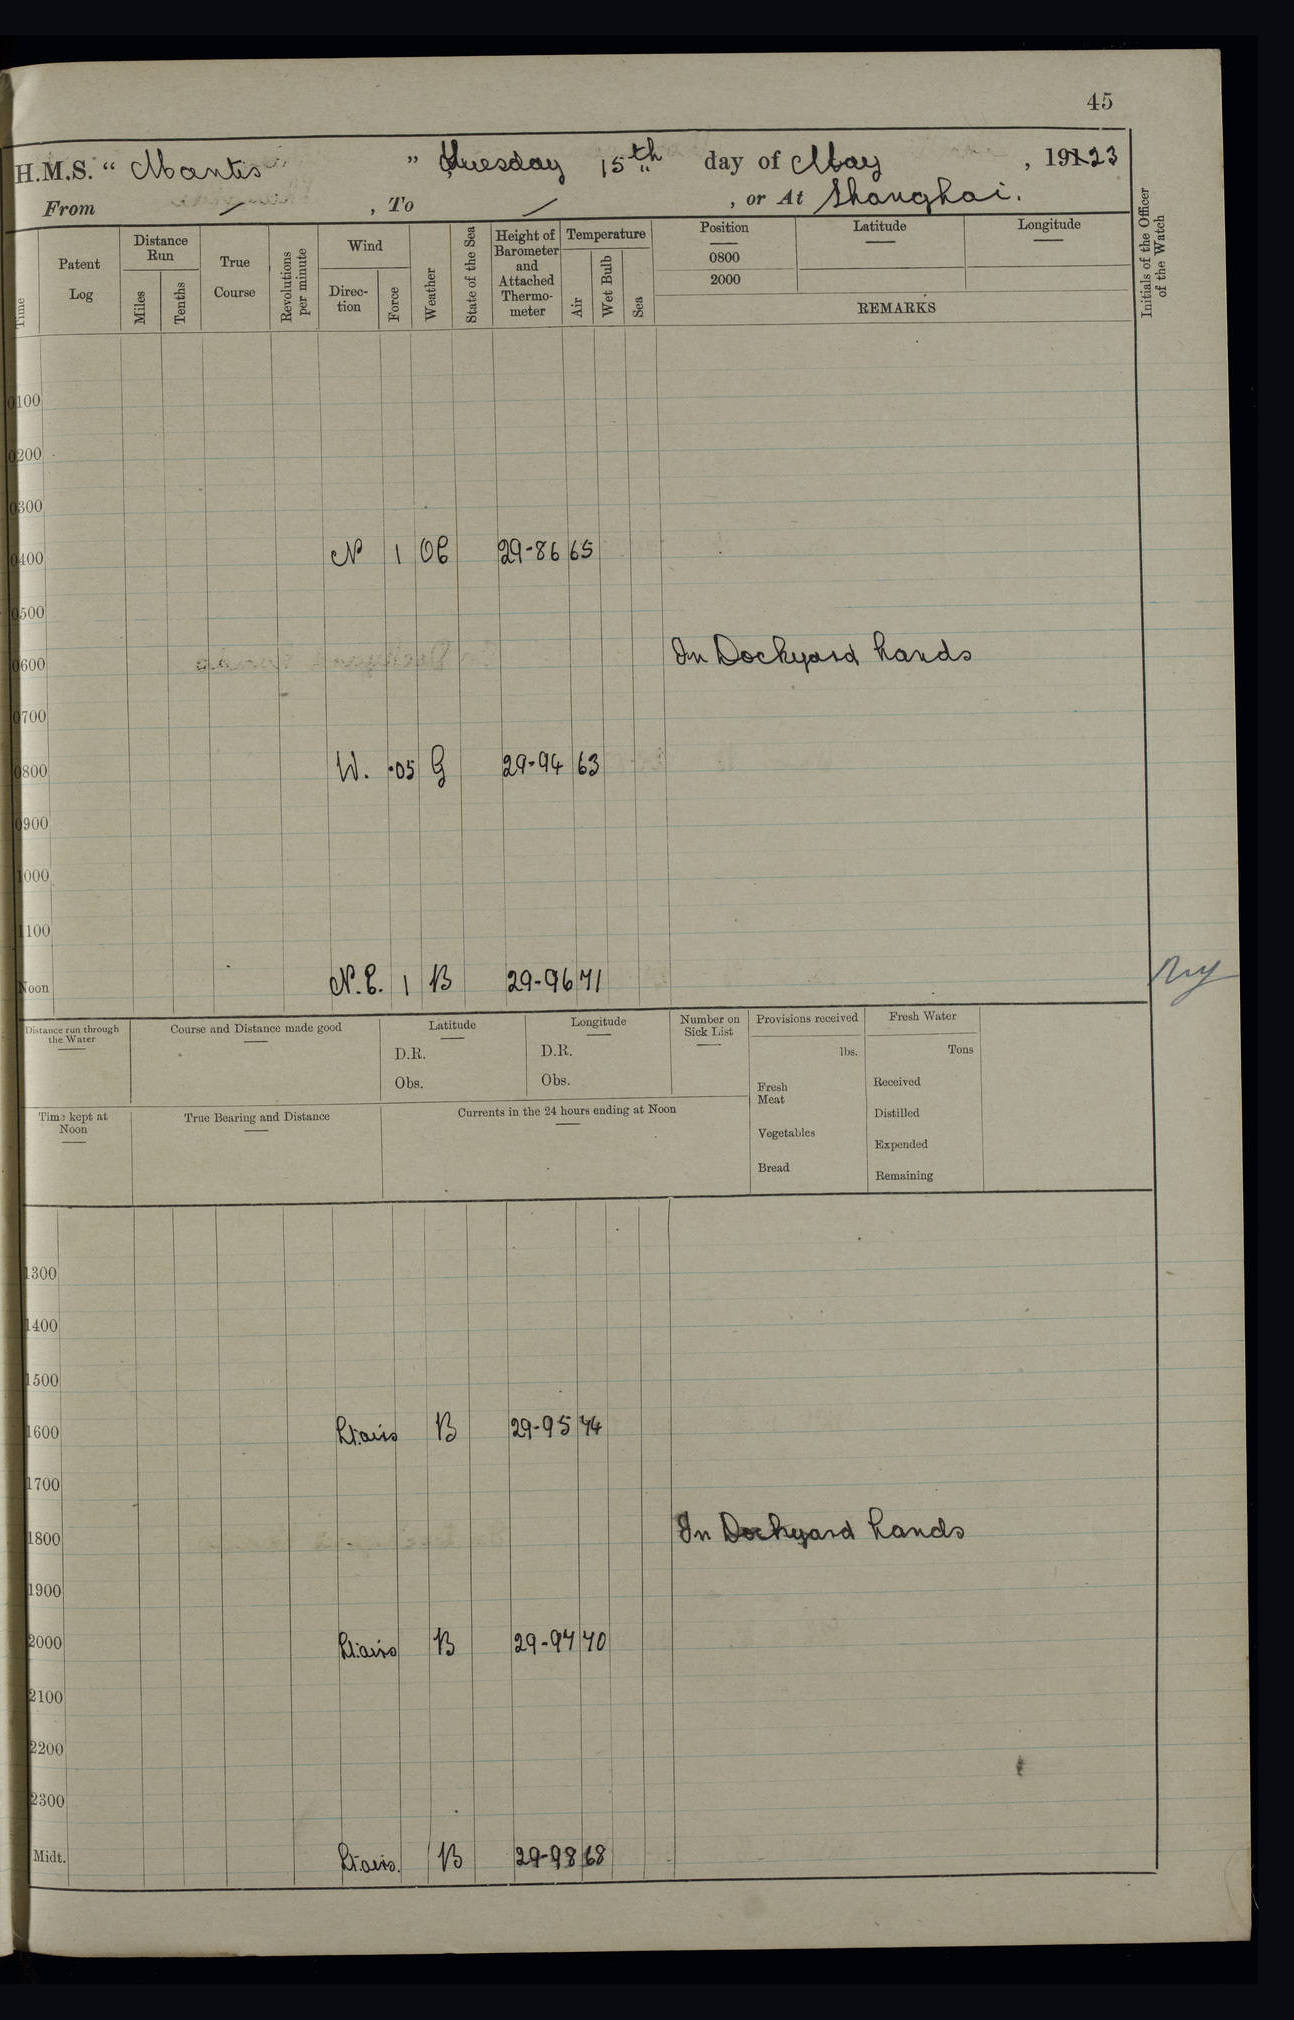 45
H.M.S. “ Mantis ” Tuesday 15th day of May , 19123
From / , To / , or At Shanghai.
Time
Patent Log
Distance Run
Miles
Tenths
True Course
Revolutions per minute
Wind
Direction
Force
Weather
State of the Sea
Height of Barometer and Attached Thermometer
Temperature
Air
Wet Bulb
Sea
Position
0800
2000
Latitude
Longitude
REMARKS
Initials of the Officer of the Watch
0100
0200
0300
0400 N 1 OC 29-86 65
0500
0600 In Dockyard hands
0700
0800 W. ·05 G 29-94 63
0900
1000
1100
Noon N.E. 1 B 29-96 71
Distance run through the Water
Course and Distance made good
Latitude
D.R.
Obs.
Longitude
D.R.
Obs.
Number on Sick List
Provisions received
lbs.
Fresh Meat
Vegetables
Bread
Fresh Water
Tons
Received
Distilled
Expended
Remaining
Time kept at Noon
True Bearing and Distance
Currents in the 24 hours ending at Noon
1300
1400
1500
1600 Lt.airs B 29-95 74
1700
1800 In Dockyard hands
1900
2000 Lt.airs B 29-97 70
2100
2200
2300
Midt. Lt.airs. B 29-98 68